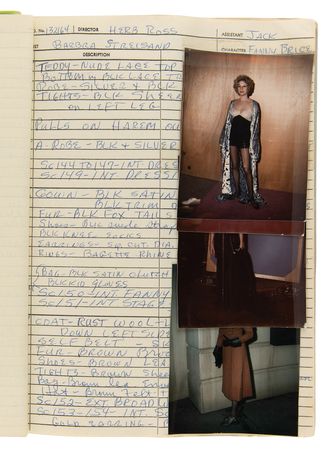 . No. 13264 DIRECTOR HERB ROSS ASSISTANT JACK
BARBRA STREISAND CHARACTER FANNY BRICE
DESCRIPTION
TEDDY - NUDE LACE TOP
BOTTOM is BLK LACE
ROBE - SILVER & BLK
TIGHTS - BLK SHEER
on LEFT LEG
PULLS ON HAREM
A-ROBE - BLK & SILVER
SC 144 TO 147 - INT DRES
SC 149 - INT DRESSI
GOWN - BLK SATIN
BLK TRIM
FUR - BLK FOX TAILS
Shoes - BLK suede
BLK KNEE SOCKS
EARRINGS - Sq cut DIA.
RINGS - BAGETTE RHINE
BAG - BLK SATIN CLUTCH
BLK KID GLOVES
SC 150 - INT FANNY
SC 151 - INT STAGE
COAT - RUST WOOL -
DOWN LEFT SIDE
SELF BELT -
FUR - BROWN
SHOES - BROWN LEA
TIGHTS - BROWN
Bag - Brown lea
Hat - Brown Felt
SC 152 - EXT BROADW
SC 153 - 154 - INT. SC
GOLD EARRING -